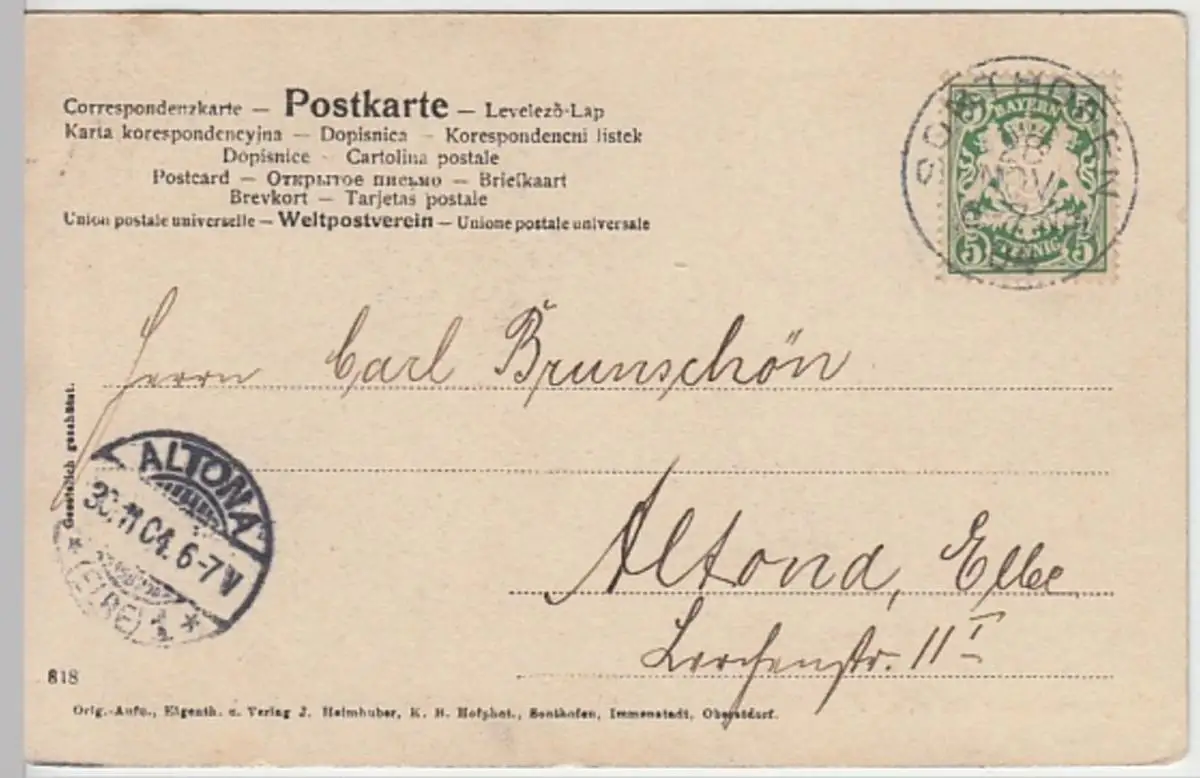 Correspondenzkarte – Postkarte – Levelező-Lap
Karta korespondencyjna – Dopisnica – Korespondencni listek
Dopisnice – Cartolina postale
Postcard – Открытое письмо – Briefkaart
Brevkort – Tarjetas postale
Union postale universelle – Weltpostverein – Unione postale universale
SONTHOFEN
28
NOV
BAYERN
5 5
PFENNIG
Herrn Carl Brunschön
Gesetzlich geschützt.
ALTONA
30.11.04. 6-7V
* (ELBE) 1 *
Altona, Elbe
Lerchenstr. 11 I
818
Orig.-Aufn., Eigenth. u. Verlag J. Heimhuber, K. B. Hofphot., Sonthofen, Immenstadt, Oberstdorf.